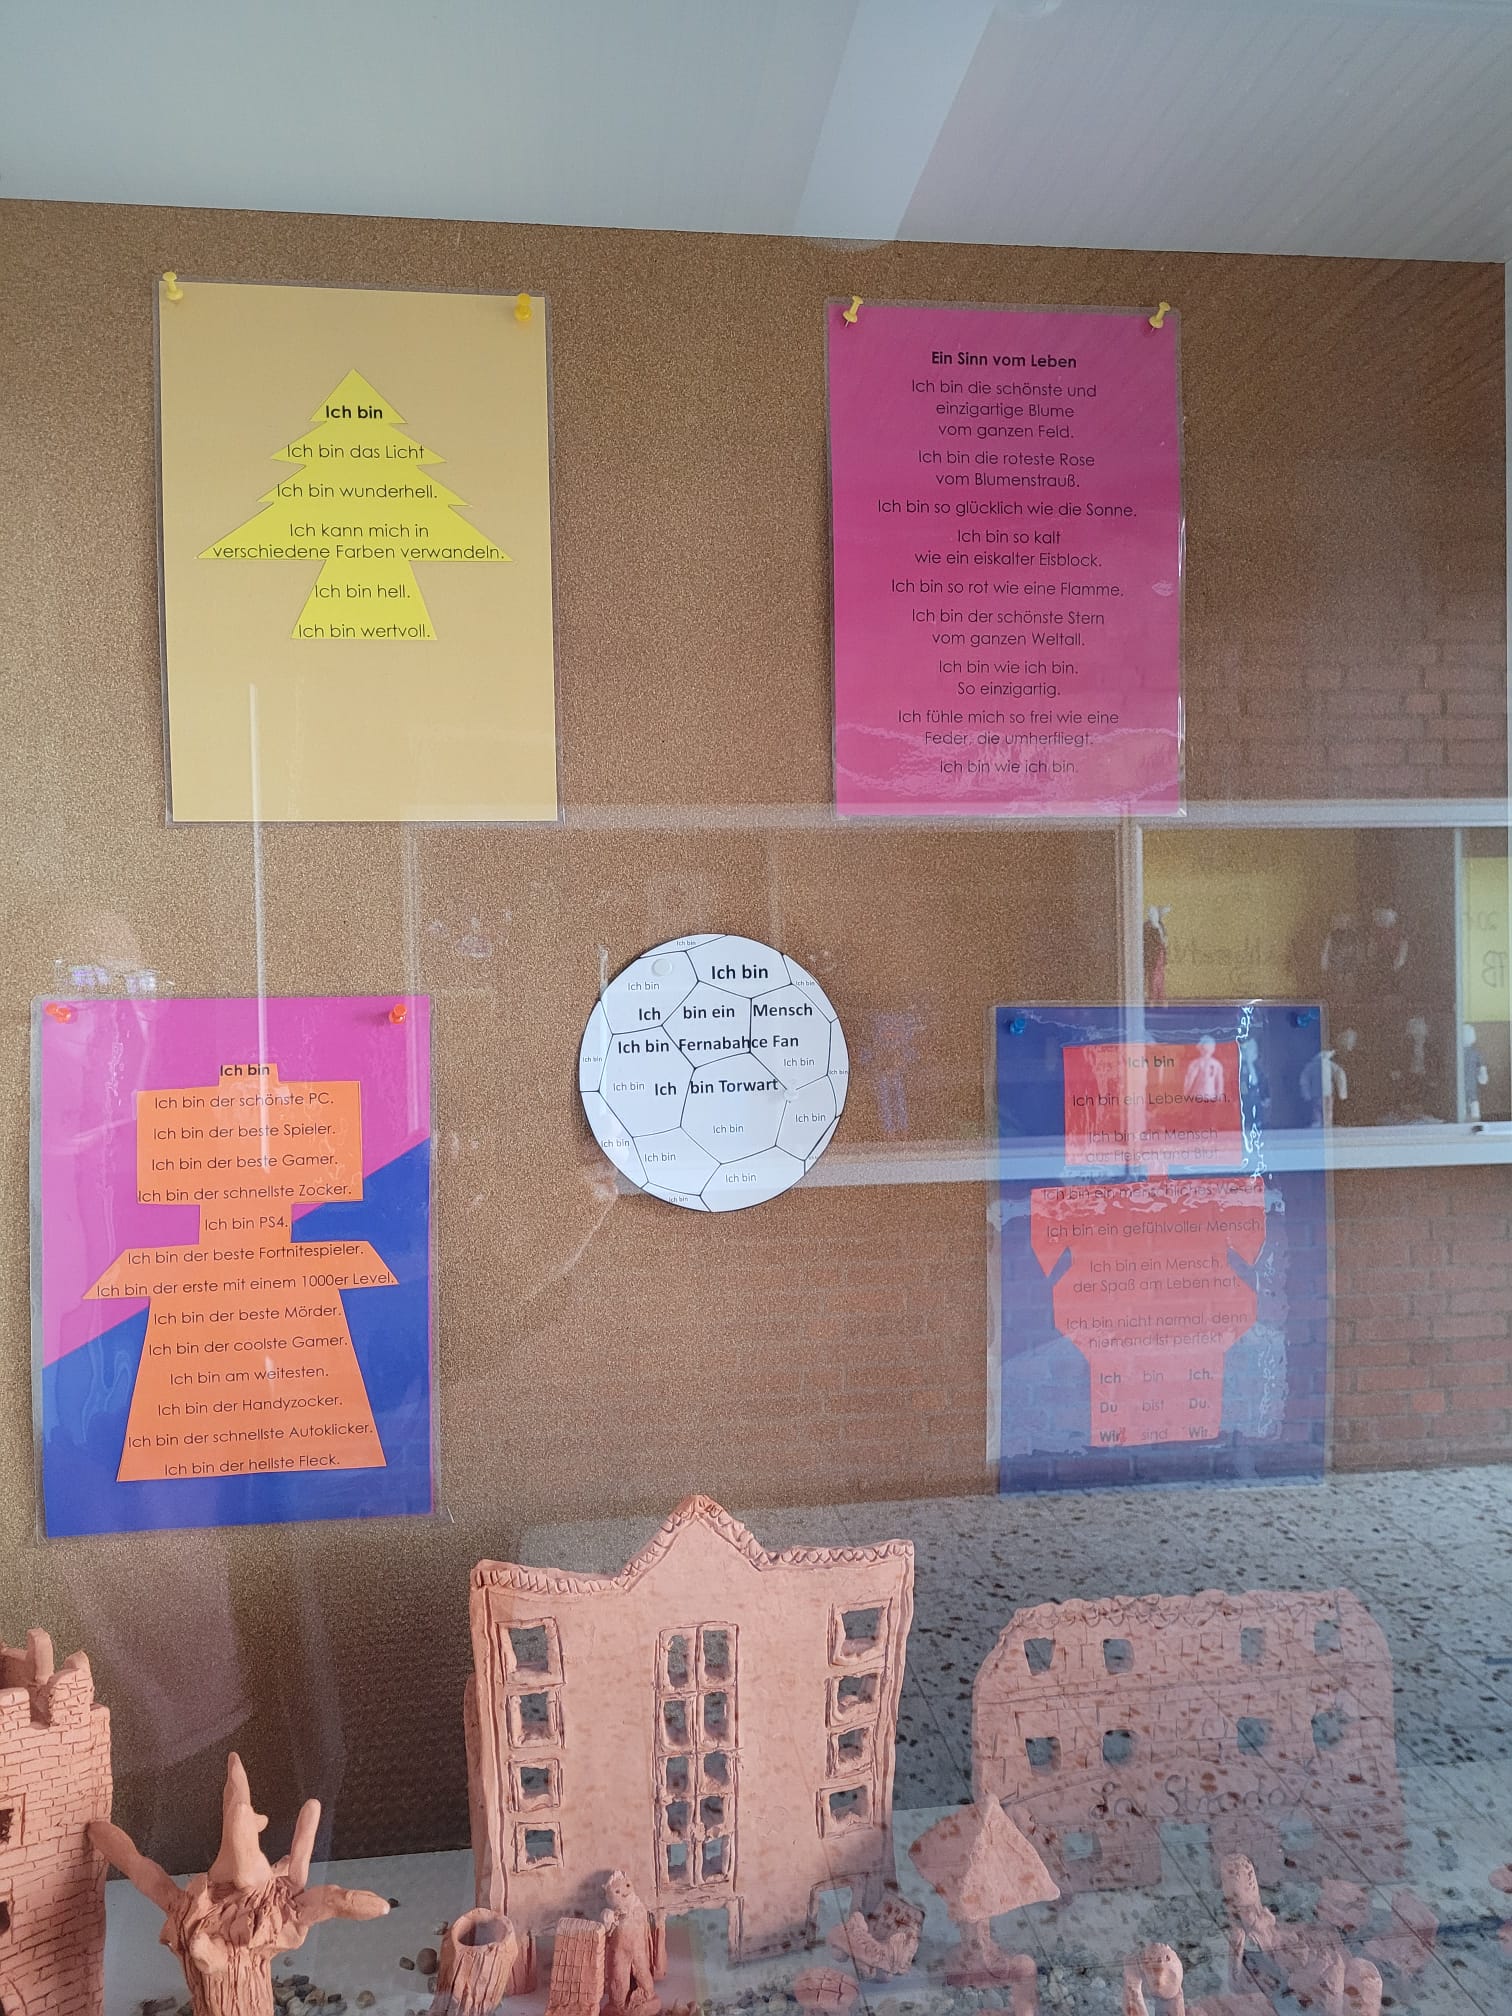 Ich bin
Ich bin das Licht
Ich bin wunderhell.
Ich kann mich in
verschiedene Farben verwandeln.
Ich bin hell.
Ich bin wertvoll.
Ein Sinn vom Leben
Ich bin die schönste und
einzigartige Blume
vom ganzen Feld.
Ich bin die roteste Rose
vom Blumenstrauß.
Ich bin so glücklich wie die Sonne.
Ich bin so kalt
wie ein eiskalter Eisblock.
Ich bin so rot wie eine Flamme.
Ich bin der schönste Stern
vom ganzen Weltall.
Ich bin wie ich bin.
So einzigartig.
Ich fühle mich so frei wie eine
Feder, die umherfliegt.
Ich bin wie ich bin.
Ich bin
Ich bin der schönste PC.
Ich bin der beste Spieler.
Ich bin der beste Gamer.
Ich bin der schnellste Zocker.
Ich bin PS4.
Ich bin der beste Fortnitespieler.
Ich bin der erste mit einem 1000er Level.
Ich bin der beste Mörder.
Ich bin der coolste Gamer.
Ich bin am weitesten.
Ich bin der Handyzocker.
Ich bin der schnellste Autoklicker.
Ich bin der hellste Fleck.
Ich bin
Ich bin
Ich bin
Ich bin
Ich bin ein Mensch
Ich bin Fernabahce Fan
Ich bin
Ich bin
Ich bin
Ich bin
Ich bin Torwart
Ich bin
Ich bin
Ich bin
Ich bin
Ich bin
Ich bin
Ich bin
Ich bin ein Lebewesen.
Ich bin ein Mensch
aus Fleisch und Blut.
Ich bin ein menschliches Wesen
Ich bin ein gefühlvoller Mensch.
Ich bin ein Mensch,
der Spaß am Leben hat.
Ich bin nicht normal, denn
niemand ist perfekt
Ich bin Ich.
Du bist Du.
Wir sind Wir.
La Strada